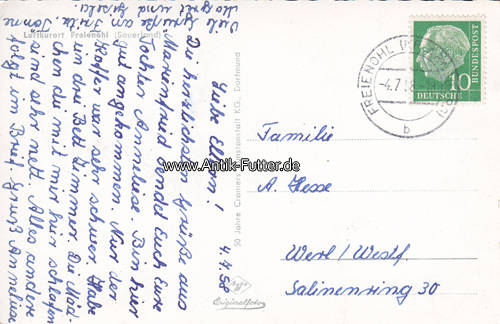 Luftkurort Freienohl (Sauerland)
Liebe Eltern! 4.7.58
Die herzlichsten Grüße aus
Marienfried sendet Euch Eure
Tochter Anneliese. Bin hier
gut angekommen. Nur der
Koffer war sehr schwer. Habe
ein drei Bett Zimmer. Die Mäd-
chen die mit mir hier schlafen
sind sehr nett. Alles andere
folgt im Brief. Gruß Anneliese
Viele Grüße an
Fritz,
50 Jahre Cramers Kunstanstalt KG., Dortmund
Originalfoto
FREIENOHL
-4.7.58
b
10
DEUTSCHE
BUNDESPOST
Familie
A. Hesse
Werl/Westf.
Salinenring 30
www.Antik-Futter.de